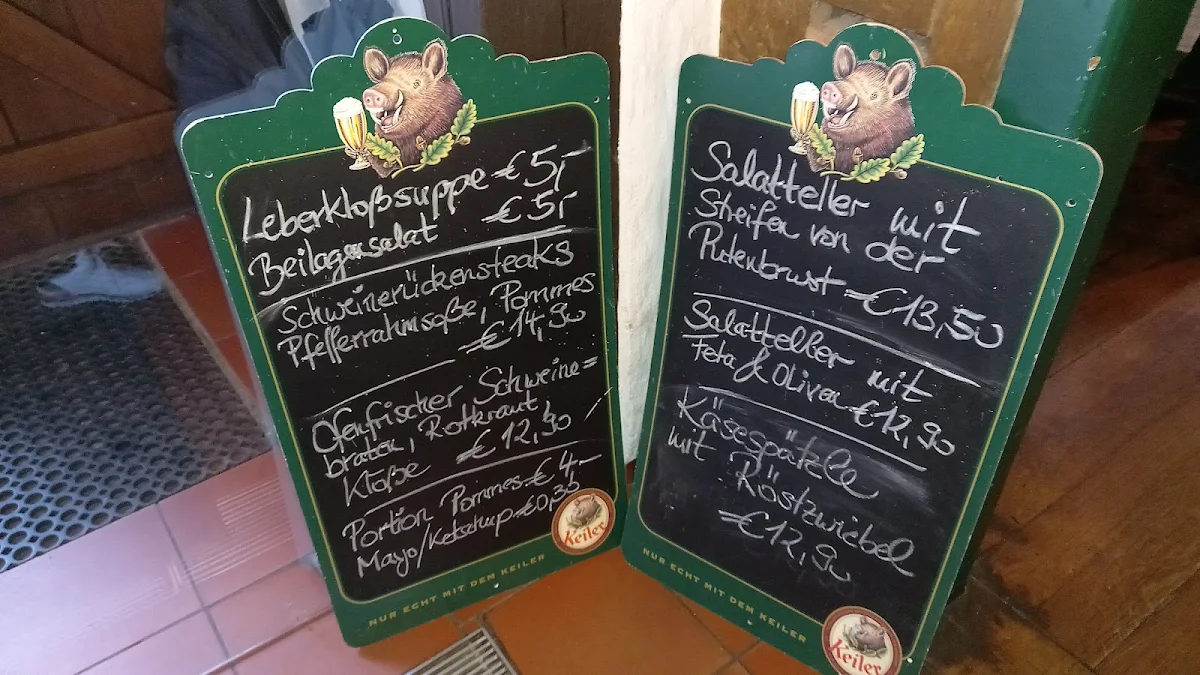 Leberkloßsuppe €5,-
Beilagensalat €5,-
Schweinerückensteaks
Pfefferrahmsoße, Pommes
€14,90
Ofenfrischer Schweine=
braten, Rotkraut,
Klöße €12,90
Portion Pommes €4,-
Mayo/Ketschup €0,30
Keiler
NUR ECHT MIT DEM KEILER
Salatteller mit
Streifen von der
Putenbrust €13,50
Salatteller mit
Feta & Oliven €12,90
Käsespätzle
mit Röstzwiebel
€12,90
NUR ECHT MIT DEM KEILER
Keiler